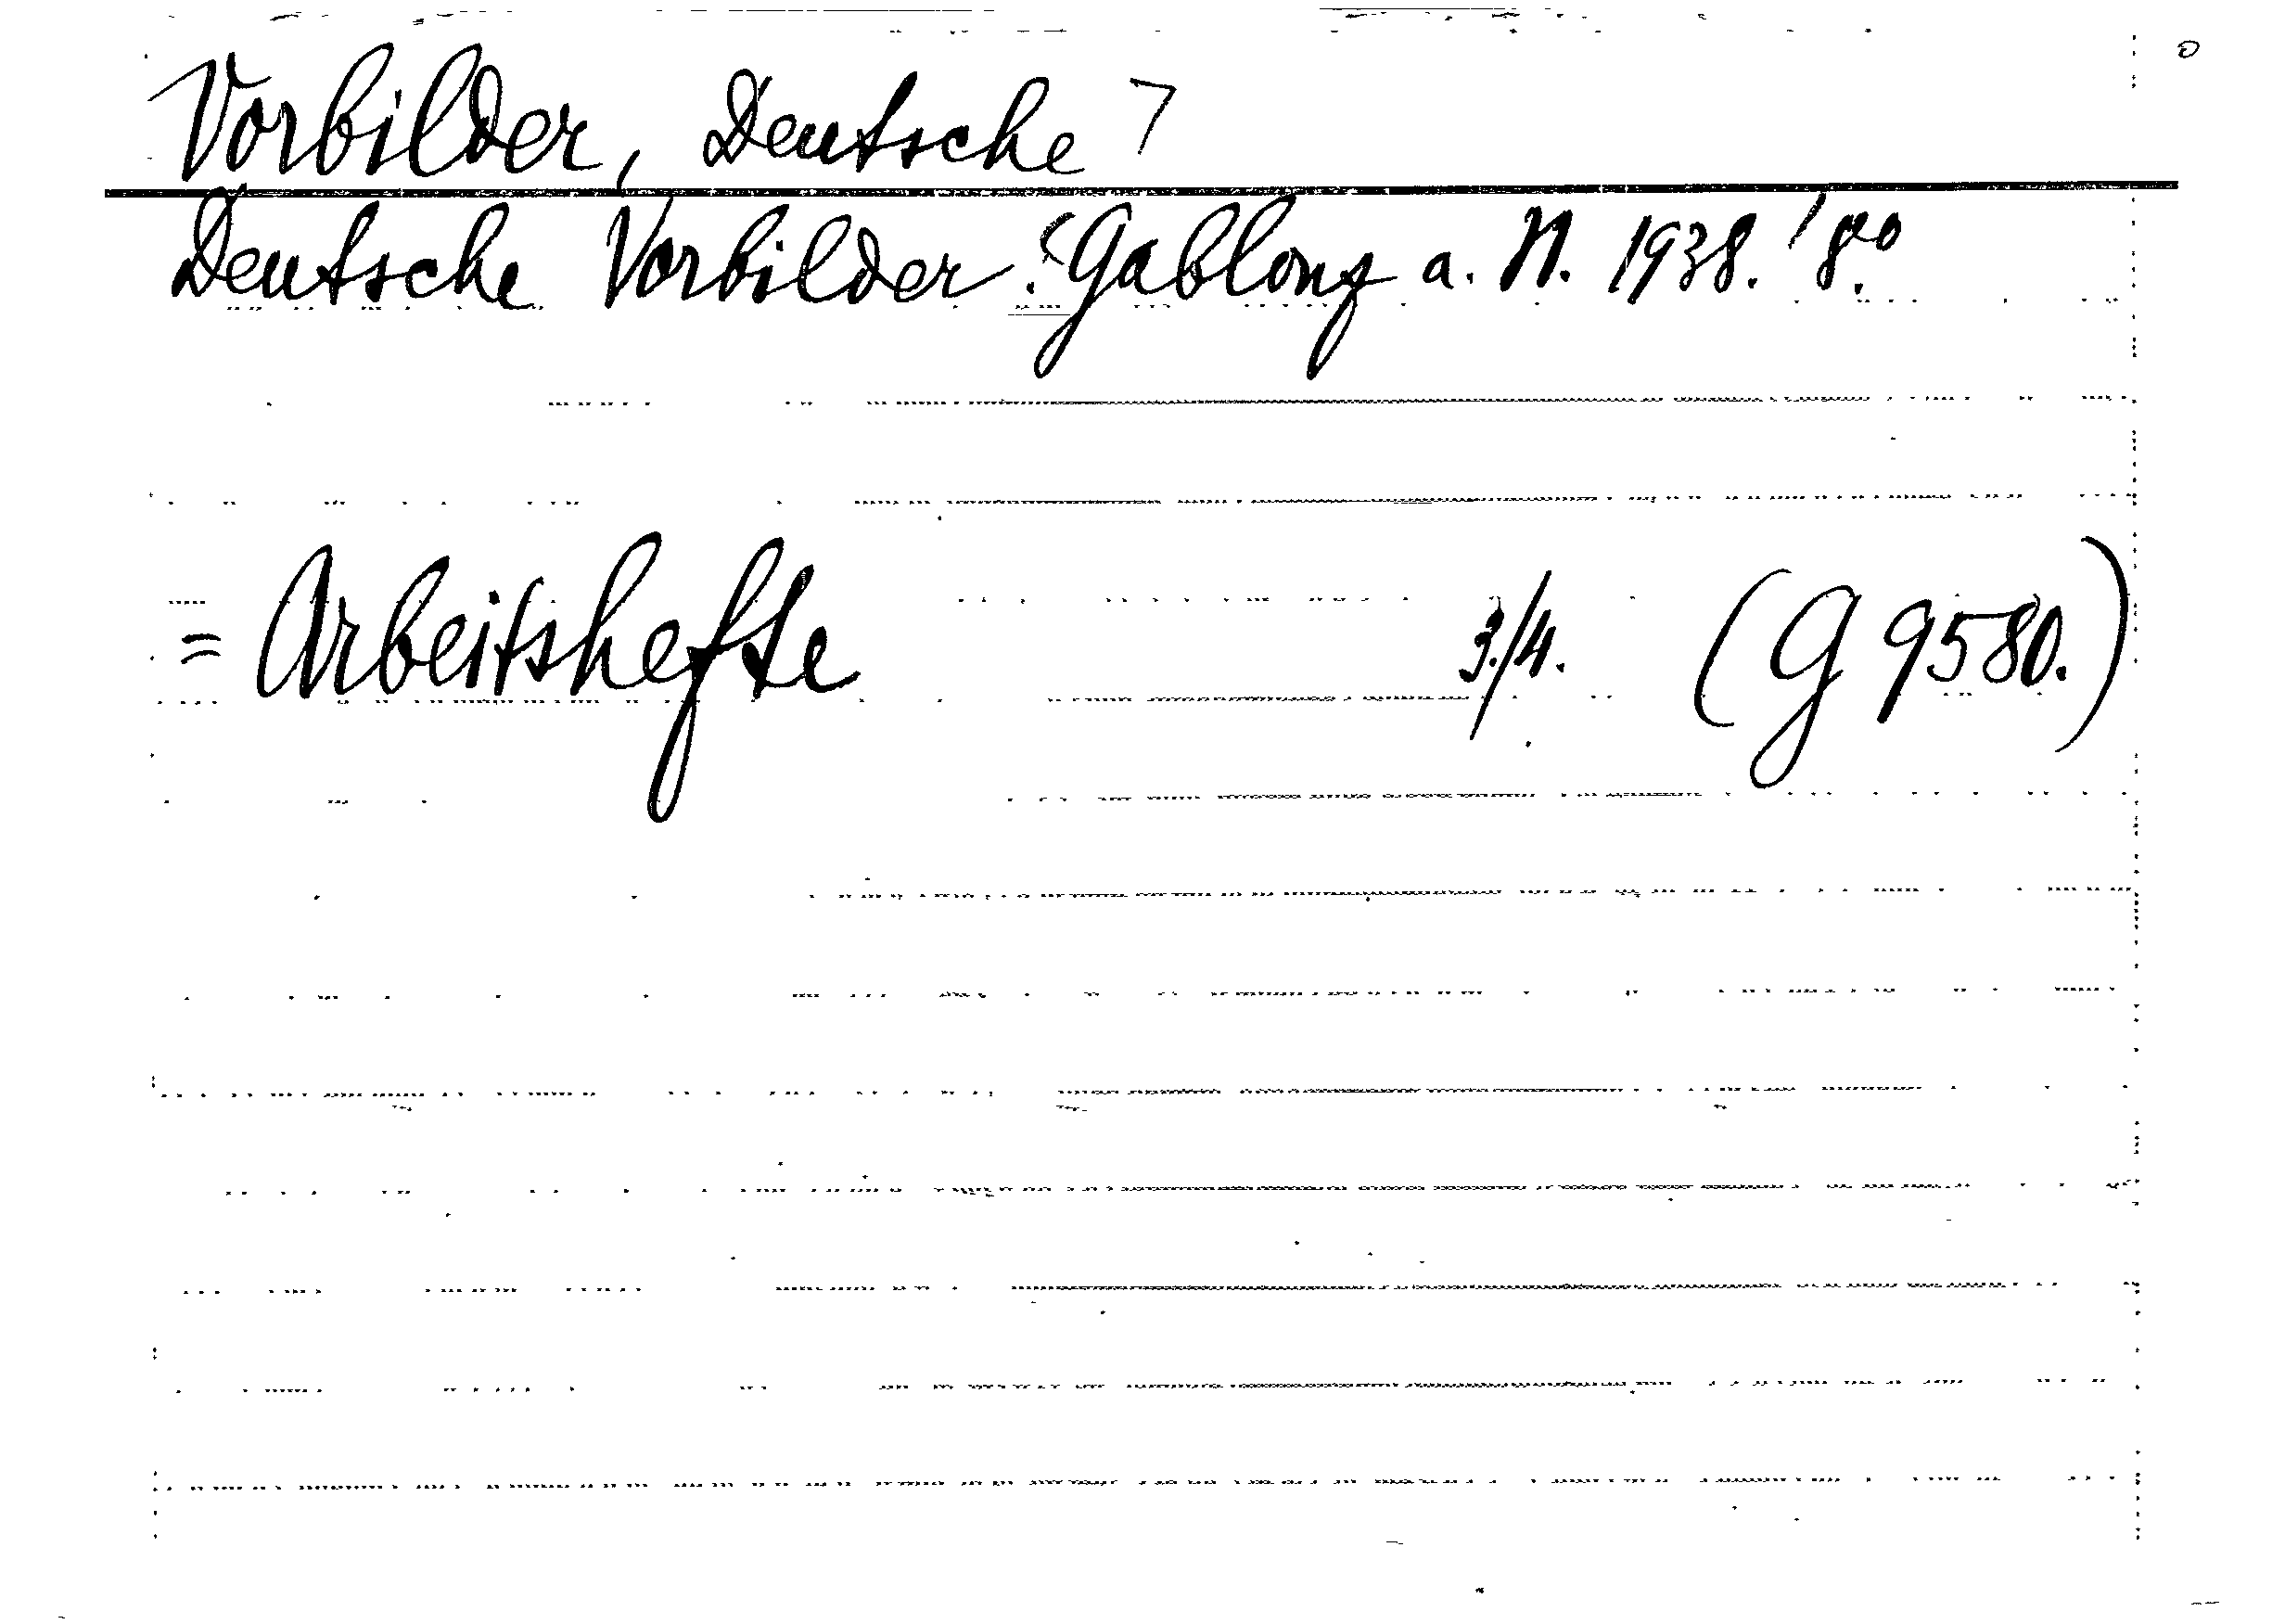 Vorbilder, Deutsche 7
Deutsche Vorbilder. (Gablonz a. N. 1938.) 8.°
= Arbeitshefte 3./4. (G 9580.)